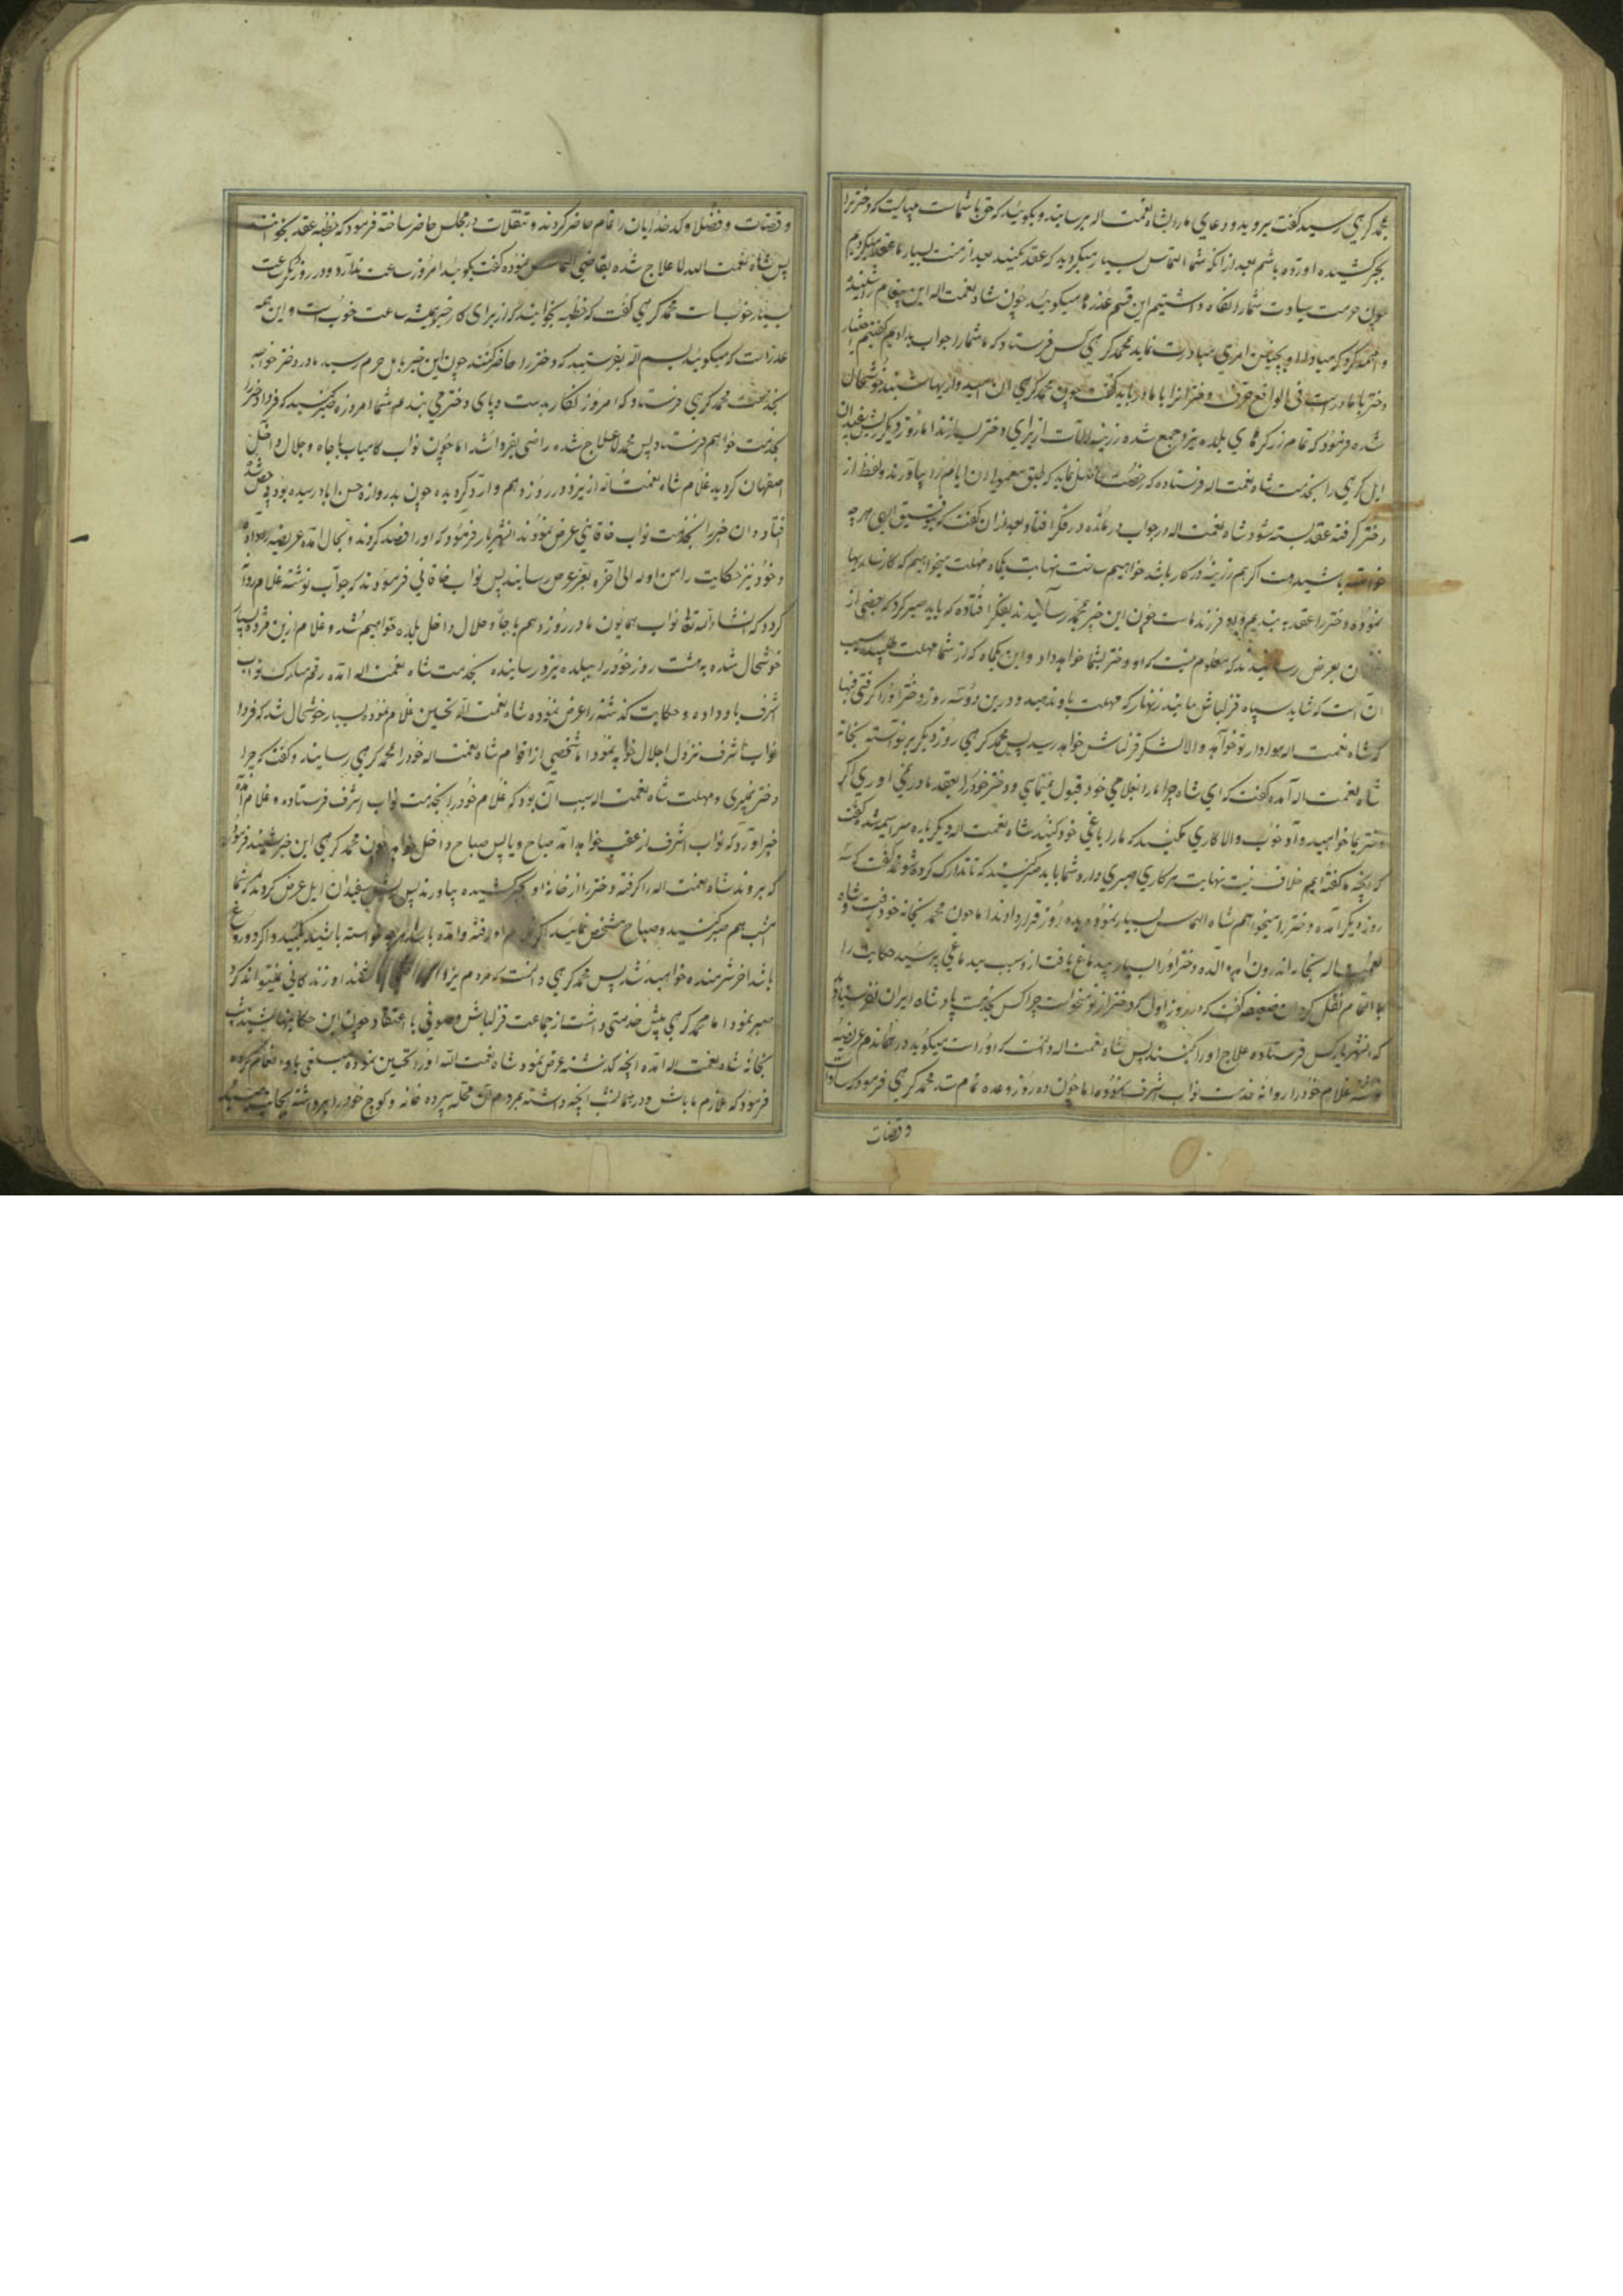 محمد کرهی رسید گفت بروید و دعای ما را بشاه نعمت اله برسانید و بگویید که حق با شماست میبایست که دختر را
بجبر کشیده آورده باشم بعد از آنکه شما التماس بسیار میکردید که عقد کنید بعد از منت بسیار ما عقد میکردیم
چون حرمت سیادت شما را نگاه داشتیم این قسم عذرها میگویید چون شاه نعمت اله این پیغام را شنید
که مبادا او چنین امری مبادرت نماید محمد کرهی کس فرستاد که ما شما را جواب ندادیم گفتیم اختیار
دختر با مادر است فی الواقع دختران را با مادر باید گفت چون محمد کرهی ان امیدواریها شنید خوشحال
شده فرمود که تمام زرگرهای بلده یزد جمع شده زرینه الات از برای دختر بسازند اما روز دیگر ریش سفیدان
ایل کرهی را بخدمت شاه نعمت اله فرستاده که رخصت نماید که طبق معهود درین ایام زر بیاورند و لفظ از
دختر گرفته عقد بسته شود شاه نعمت اله در جواب درمانده در فکر افتاد بعد از ان گفت که بتوفیق الهی هر چه
خواسته باشید و اگر هم زرینه در کار باشد خواهیم ساخت نهایت یکماه مهلت میخواهیم که کارسازیها
نموده دختر را عقد به بندیم و او فرزند ماست چون این خبر بمحمد رسانیدند بفکر افتاده که باید صبر کرد که بعضی از
ان بعرض رسانیدند که معلوم نیست که او دختر بشما خواهد داد و این یکماه که از شما مهلت طلبیده سبب
آن است که شاید سپاه قزلباش بیایند زنهار که مهلت باو ندهید و درین دو سه روز دختر او را گرفتی فبها
که شاه نعمت اله هوادار تو خواهد و الا لشکر قزلباش خواهد رسید پس محمد کرهی روز دیگر برخواسته بخانه
شاه نعمت اله آمده گفت که ای شاه چرا ما را بغلامی خود قبول مینمایی و دختر خود را بعقد ما در نمی اوری اگر
دختر بما خواهید داد خوب و الا کاری مکنید که ما را باغی خود کنید شاه نعمت اله دیگر باره سراسیمه شده گفت
که آنچه ما گفته ایم خلاف نیست نهایت هر کاری صبری دارد شما باید صبر کنید که تا تدارک کرده شود محمد گفت که سه
روز دیگر آمده دختر را میخواهم شاه التماس بسیار نموده به ده روز قرار دادند اما چون محمد بخانه خود رفت و شاه
نعمت اله بخانه اندرون آمد والده دختر او را بسیار بیدماغ یافت از سبب بیدماغی پرسید حکایت را
بالتمام نقل کرد ان ضعیفه گفت که در روز اول که دختر از تو میخواست چرا کس بخدمت پادشاه ایران نفرستادی
که انشهریار کس فرستاده علاج او را بکنند پس شاه نعمت اله دانست که او راست میگوید در همان دم عریضه
نوشته غلام خود را روانه خدمت نواب اشرف نموده اما چون ده روز وعده تمام شد محمد کرهی فرمود که سادات
و قضات
و قضات و فضلا و کدخدایان را تمام حاضر کردند و تنقلات در مجلس حاضر ساخته فرمود که خطبه عقد بخوانند
پس شاه نعمت الله لا علاج شده بقاضی التماس نموده گفت بگویید امروز ساعت ندارد و در روز دیگر ساعت
بسیار خوب است محمد کرهی گفت که خطبه بخوانید که از برای کار خیر همیشه ساعت خوب است و این همه
عذر است که میگویید بسم اله بفرستید که دختر را حاضر کنند چون این خبر باهل حرم رسید مادر دختر خواجه
بخدمت محمد کرهی فرستاد که امروز نگار بدست و پای دختر می بندم شما امروز صبر کنید که فردا دختر را
بخدمت خواهم فرستاد پس محمد لاعلاج شده راضی بفردا شد اما چون نواب کامیاب با جاه و جلال داخل
اصفهان گردید غلام شاه نعمت اله از یزد در روز دهم وارد گردیده چون بدروازه حسن اباد رسیده بود
افتاد ان خبر را بخدمت نواب خاقانی عرض نمودند انشهریار فرمود که او را فصد کردند و بحال آمده عریضه را داده
و خود نیز حکایت را من اوله الی اخره بعز عرض رسانید پس نواب خاقانی فرمودند که جواب نوشته غلام روانه
گردد که انشاء اله تعالی نواب همایون ما در روز دهم با جاه و جلال داخل بلده خواهیم شد و غلام ازین مژده بسیار
خوشحال شده به هشت روز خود را ببلده یزد رسانیده بخدمت شاه نعمت اله آمده رقم مبارک نواب
اشرف باو داده و حکایت گذشته را عرض نموده شاه نعمت اله تحسین غلام نموده بسیار خوشحال شد که فردا
نواب اشرف نزول اجلال خواهد نمود اما شخصی از اقوام شاه نعمت اله خود را بمحمد کرهی رسانید و گفت که چرا
دختر نمیبری و مهلت شاه نعمت اله سبب آن بود که غلام خود را بخدمت نواب اشرف فرستاده و غلام آمده
خبر اورد که نواب اشرف از عقب خواهد آمد صباح و یا پس صباح داخل خواهد شد چون محمد کرهی این خبر شنید فرمود
که بروند شاه نعمت اله را گرفته و دختر را از خانه او بجبر کشیده بیاورند پس ریش سفیدان ایل عرض کردند که شما
امشب هم صبر کنید و صباح مشخص نمایید اگر غلام او رفته و امده باشد هر چه خواسته باشید بکنید و اگر دروغ
باشد اخر شرمنده خواهید شد پس محمد کرهی دانست که مردم یزد او زندگانی نمیتواند کرد
صبر نمود اما محمد کرهی پیش خدمتی داشت از جماعت قزلباش و صوفی با اعتقاد چون این حکایتها شنید شب
بخانه شاه نعمت اله آمده انچه گذشته عرض نمود شاه نعمت الله او را تحسین نموده مبلغی باو انعام کرده
فرمود که ملازم ما باش و در همان شب انچه داشته بمردم آن محله سپرده خانه و کوچ خود را برداشته